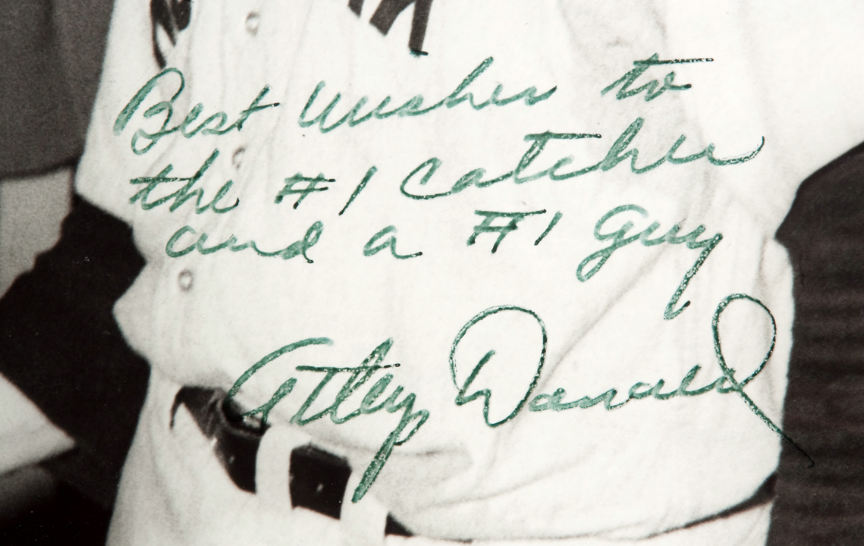 Best Wishes to
the #1 Catcher
and a #1 Guy
Atley Donald